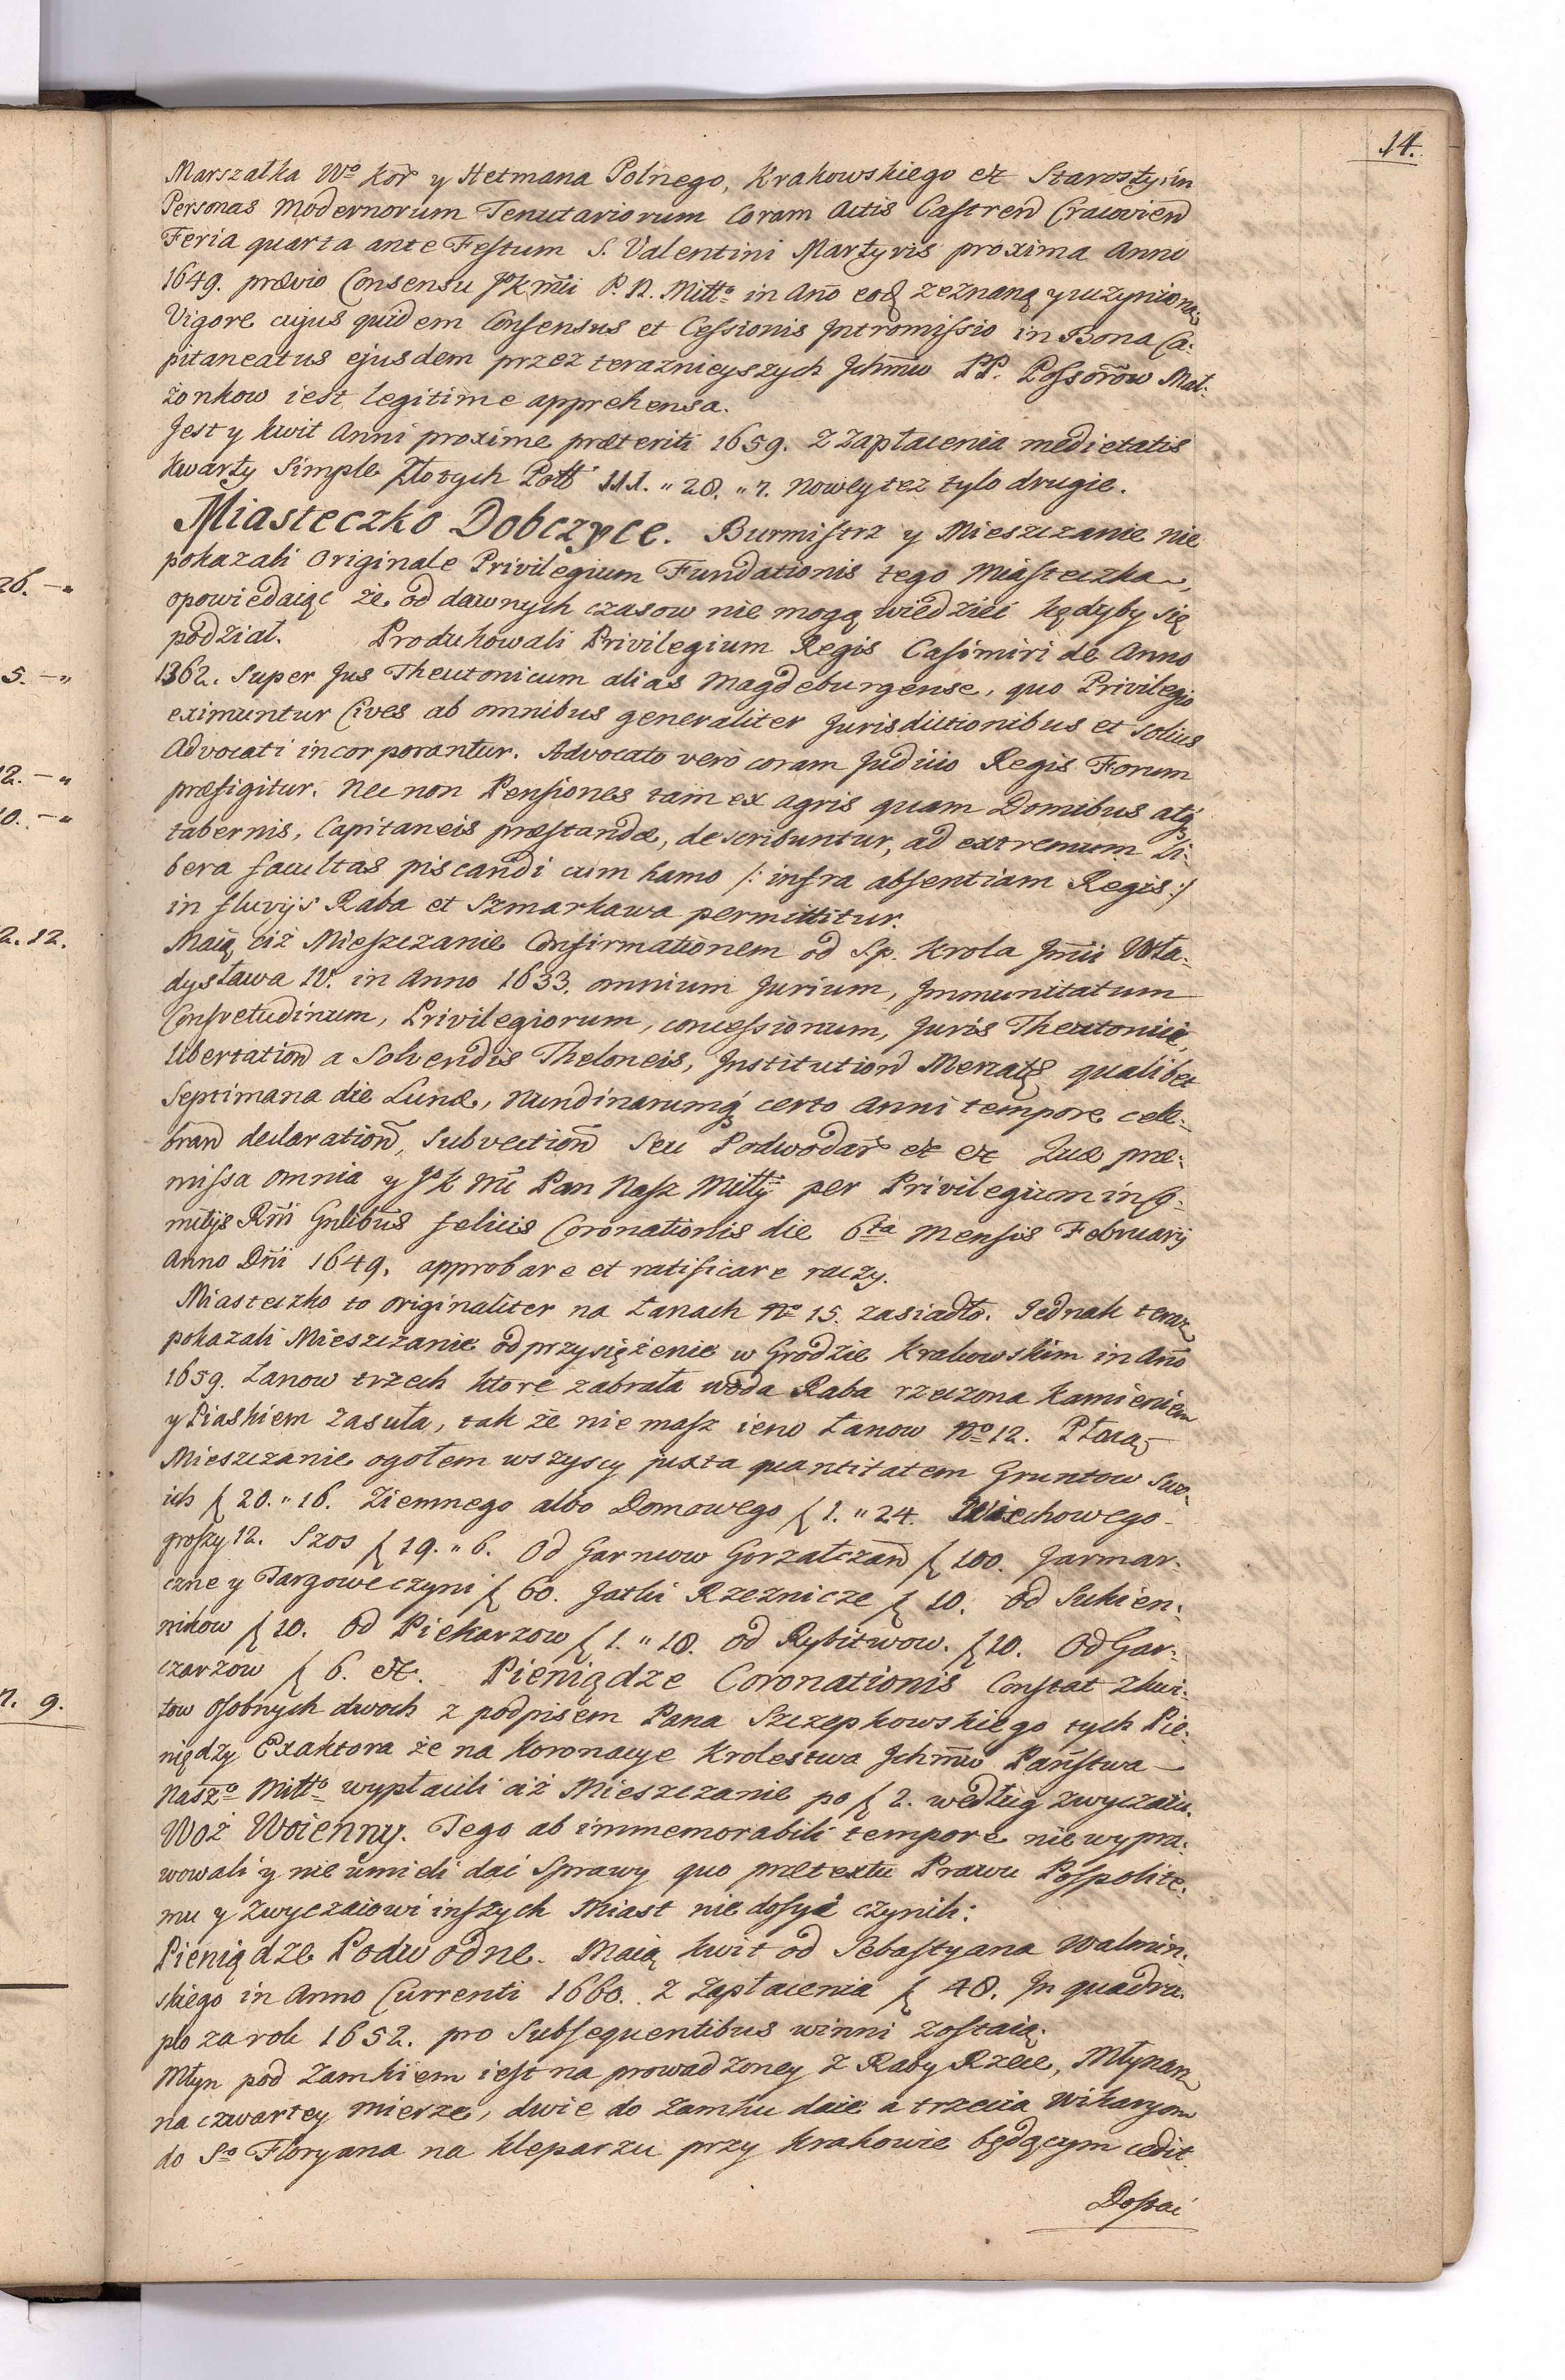 14.
Marszałka Wo Kor y Hetmana Polnego, Krakowskiego etc Starosty in
Personas Modernorum Tenutariorum Coram Actis Castren Cracovien
Feria quarta ante Festum S. Valentini Martyris proxima Anno
1649. prævio Consensu JKmci P. N. Mitto in Ano eod zeznaną y uczynioną
Vigore cujus quidem Consensus et Cessionis Intromissio in Bona Ca:
pitaneatus ejusdem przez teraznieyszych Jchmw PP. Possorow Mał:
żonkow iest legitime apprehensa.
Jest y kwit Anni proxime præteriti 1659. Z zapłacenia medietatis
Kwarty Simple Złotych Poll 111. " 28. " 7. Nowey tez tylo drugie.
Miasteczko Dobczyce. Burmistrz y Mieszczanie nie
pokazali Originale Privilegium Fundationis tego Miasteczka,
opowiedaiąc że od dawnych czasow nie mogą wiedzieć kędyby się
podział. Produkowali Privilegium Regis Casimiri de Anno
1362. Super Jus Theutonicum alias Magdeburgense, quo Privilegio
eximuntur Cives ab omnibus generaliter Jurisdictionibus et solius
Advocati incorporantur. Advocato vero coram Judicio Regis Forum
præfigitur. Nec non Pensiones tam ex agris quam Domibus atq
tabernis, Capitaneis præstandæ, describuntur, ad extremum Li:
bera facultas piscandi cum hamo /: infra absentiam Regis :/
in fluvijs Raba et Szmarkawa permittitur.
Maią ciż Mieszczanie Confirmationem od S.p. Krola Jmci Wła:
dysława IV. in Anno 1633. omnium Jurium, Immunitatum
Consvetudinum, Privilegiorum, concessionum, Juris Theutonici,
libertation a Solvendis Theloneis, Institution Mercat qualibet
Septimana die Lunæ, Nundinarumq certo Anni tempore cele:
bran declaration, subvection seu Podwodar etc etc Quæ præ:
missa omnia y JK Mć Pan Nasz Miłły per Privilegium in Co:
mitijs Rni Gnlibus felicis Coronationis die 6ta Mensis Februarij
Anno Dni 1649. approbare et ratificare raczy.
Miasteczko to originaliter na Łanach No 15. zasiadło. Jednak teraz
pokazali Mieszczanie odprzysiężenie w Grodzie Krakowskim in Ano
1659. Łanow trzech ktore zabrała woda Raba rzeczona kamieniem
y Piaskiem zasuła, tak że nie masz ieno Łanow No 12. Płacą
Mieszczanie ogołem wszyscy juxta quantitatem Gruntow swo:
ich f 20. " 16. Ziemnego albo Domowego f 1. " 24. Wiechowego
groszy 12. Szos f 19. " 6. Od Garncow Gorzałczan f 100. Jarmar:
czne y Targowe czyni f 60. Jatki Rzeznicze f 10. Od Sukien:
nikow f 10. Od Piekarzow f 1. " 18. Od Rybitwow. f 10. Od Gar:
czarzow f 6. etc. Pieniądze Coronationis Constat z kwi:
tow osobnych dwoch z podpisem Pana Szczepkowskiego tych Pie:
niędzy Exaktora że na Koronacye Krolestwa Jchmw Państwa
Naszo Mitto wypłacili ciż Mieszczanie po f 2. według zwyczaiu.
Woż Woienny. Tego ab immemorabili tempore nie wypra:
wowali y nie umieli dać Sprawy quo prætextu Prawu Pospolite:
mu y zwyczaiowi inszych Miast nie dosyć czynili:
Pieniądze Podwodne. Maią kwit od Sebastyana Walmin:
skiego in Anno Currenti 1660. z zapłacenia f 48. In quadru:
plo za rok 1652. pro Subsequentibus winni zostaią.
Młyn pod Zamkiem iest na prowadzoney z Raby Rzece, Młynarz
na czwartey mierze, dwie do Zamku daie a trzecia Wikaryom
do So Floryana na Kleparzu przy Krakowie będącym cedit.
Dostai
26. — "
5. — "
12. — "
10. — "
2. 12.
n. 9.